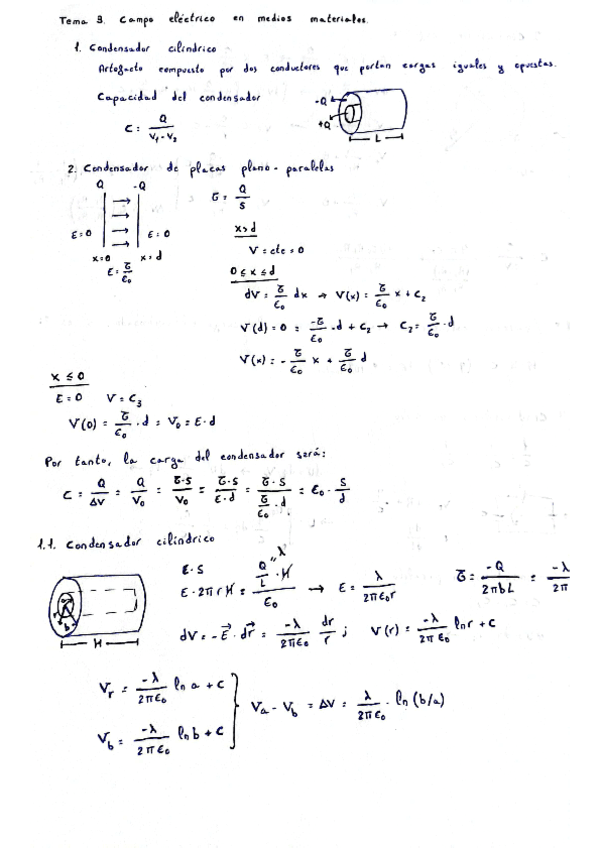 Tema 3. Campo eléctrico en medios materiales.
1. Condensador cilíndrico
Artefacto compuesto por dos conductores que portan cargas iguales y opuestas.
Capacidad del condensador
C = Q / (V₁ - V₂)
-Q
+Q
L
2. Condensador de placas plano-paralelas
Q -Q
E=0 E=0
x=0 x=d
E = σ/ε₀
σ = Q/S
x>d
V = cte = 0
0 ≤ x ≤ d
dV = σ/ε₀ dx → V(x) = σ/ε₀ x + C₂
V(d) = 0 = -σ/ε₀ · d + C₂ → C₂ = σ/ε₀ · d
V(x) = - σ/ε₀ x + σ/ε₀ d
x ≤ 0
E = 0 V = C₃
V(0) = σ/ε₀ · d = V₀ = E·d
Por tanto, la carga del condensador será:
C = Q/ΔV = Q/V₀ = σ·S/V₀ = σ·S/(E·d) = σ·S/(σ/ε₀ · d) = ε₀ · S/d
1.1. Condensador cilíndrico
a
b
H
E·S
E·2πrH = (Q/L · H)/ε₀ → E = λ/(2πε₀r)
" λ
σ = -Q/(2πbL) = -λ/2π
dV = -E⃗ · dr⃗ = -λ/(2πε₀) dr/r ; V(r) = -λ/(2πε₀) ln r + C
Vᵣ = -λ/(2πε₀) ln a + C
V_b = -λ/(2πε₀) ln b + C
Vₐ - V_b = ΔV = λ/(2πε₀) · ln (b/a)